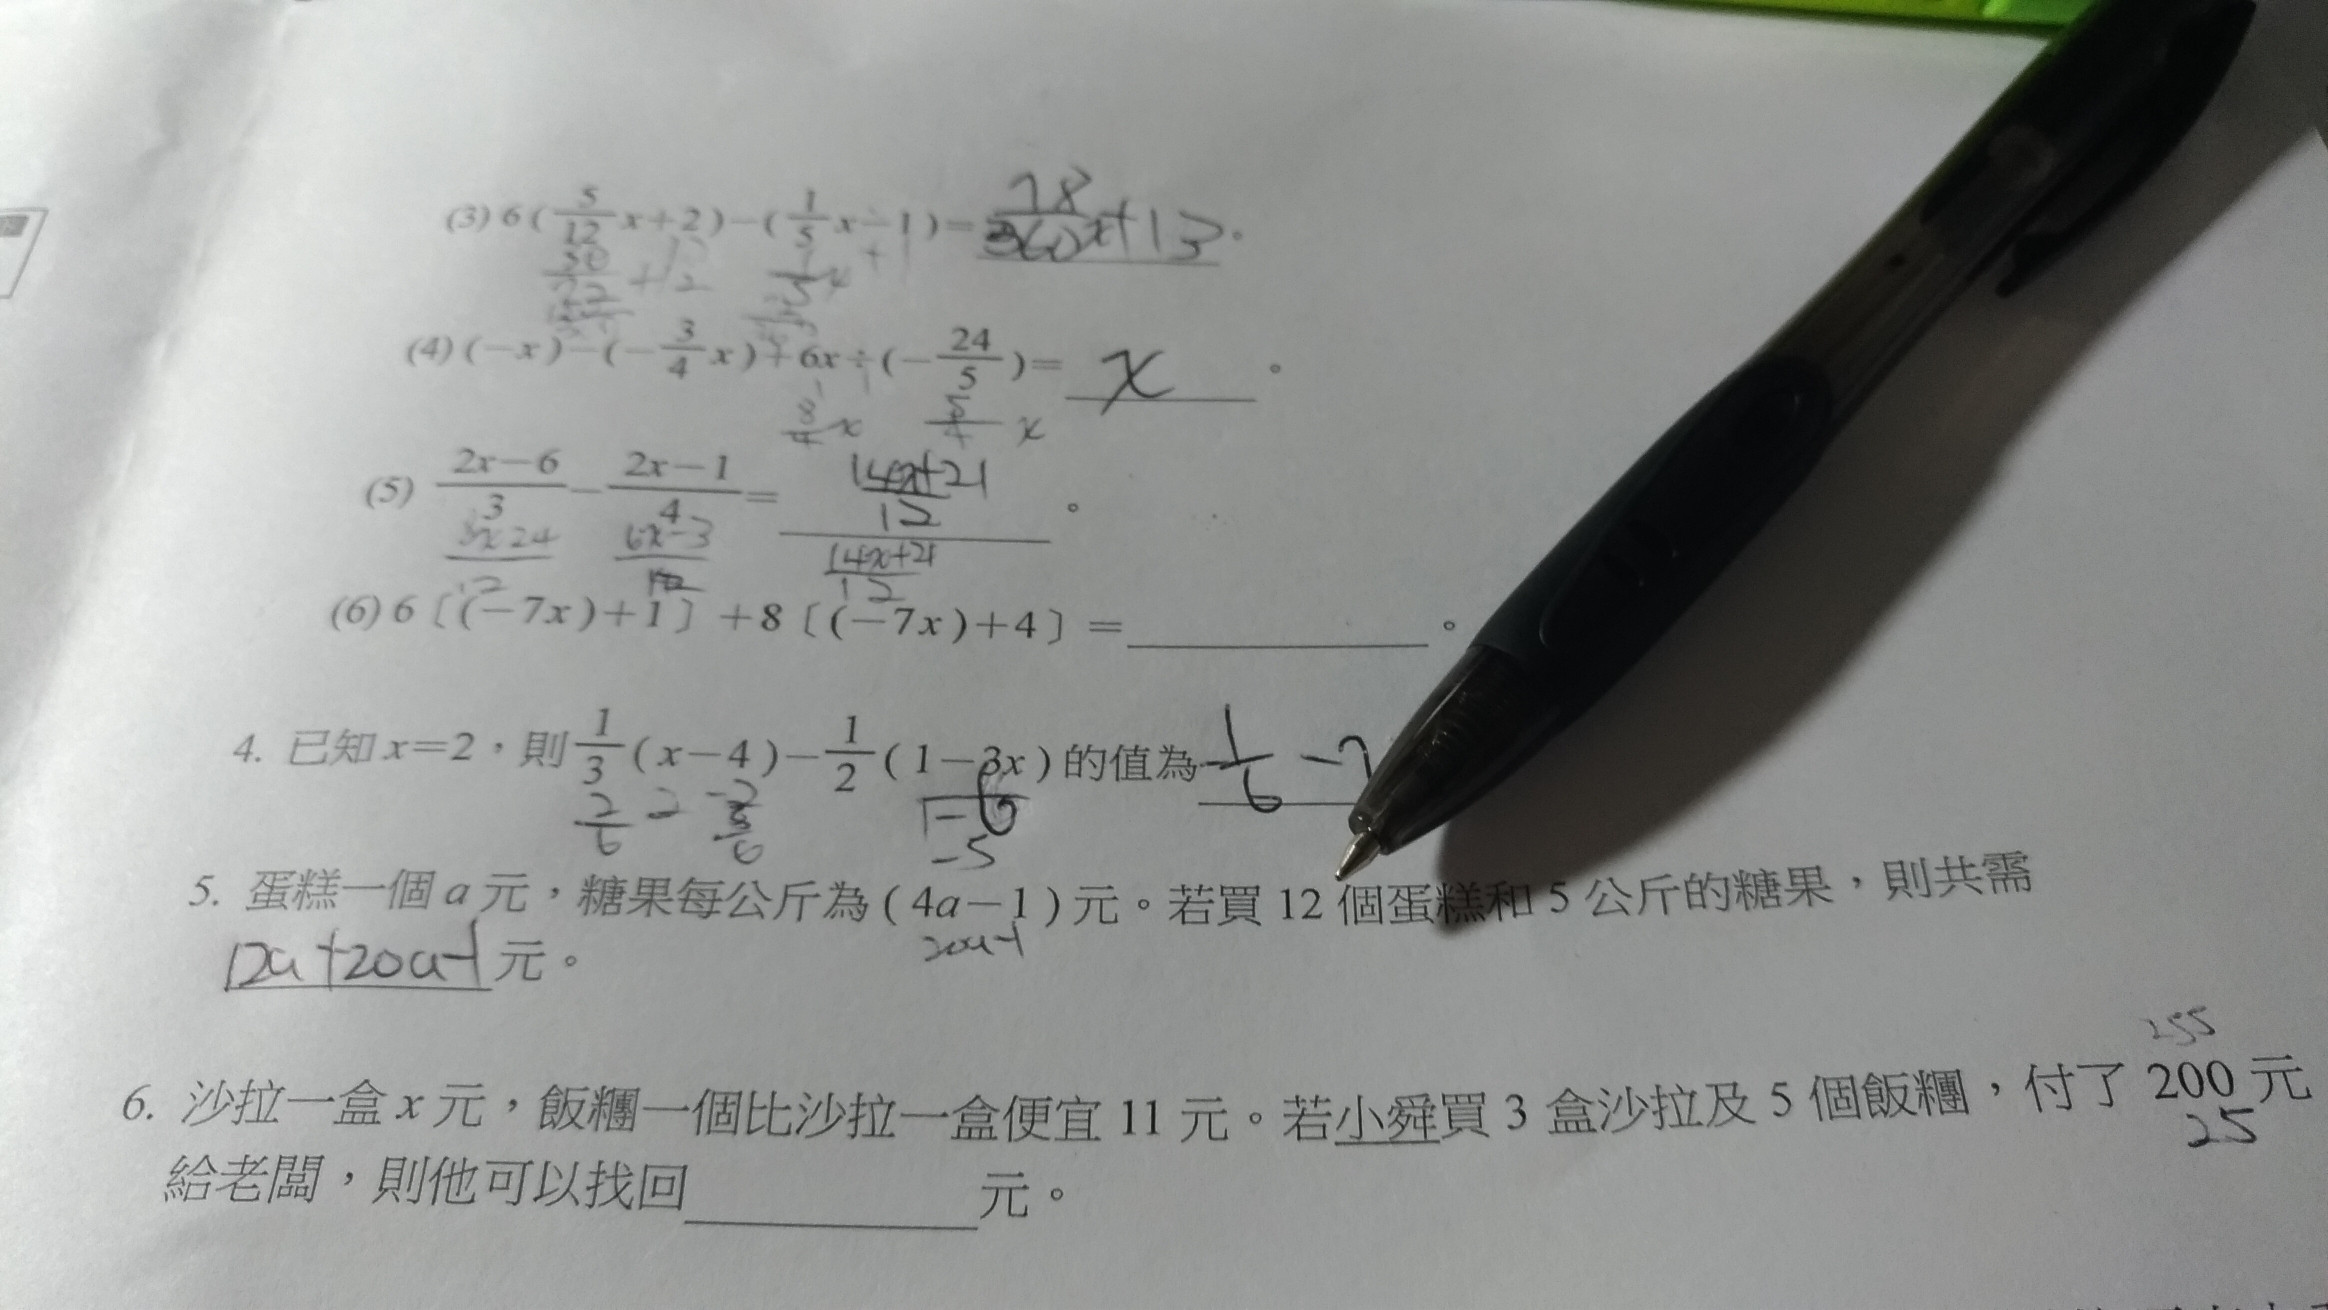 (3) 6(5/12x+2)-(1/5x-1)= 78/360x+13。
+12
(4) (-x)-(-3/4x)+6x÷(-24/5)= x。
8/4x 5/4 x
(5) 2x-6/3-2x-1/4= 14x+21/12。
8x24/12 6x-3/12 14x+21/12
(6) 6〔(-7x)+1〕+8〔(-7x)+4〕=
4. 已知x=2，則1/3(x-4)-1/2(1-3x)的值為 1/6
2/6 1-6
-5
5. 蛋糕一個a元，糖果每公斤為(4a-1)元。若買12個蛋糕和5公斤的糖果，則共需
20a-1
12a+20a-1元。
255
6. 沙拉一盒x元，飯糰一個比沙拉一盒便宜11元。若小舜買3盒沙拉及5個飯糰，付了200元
25
給老闆，則他可以找回 元。